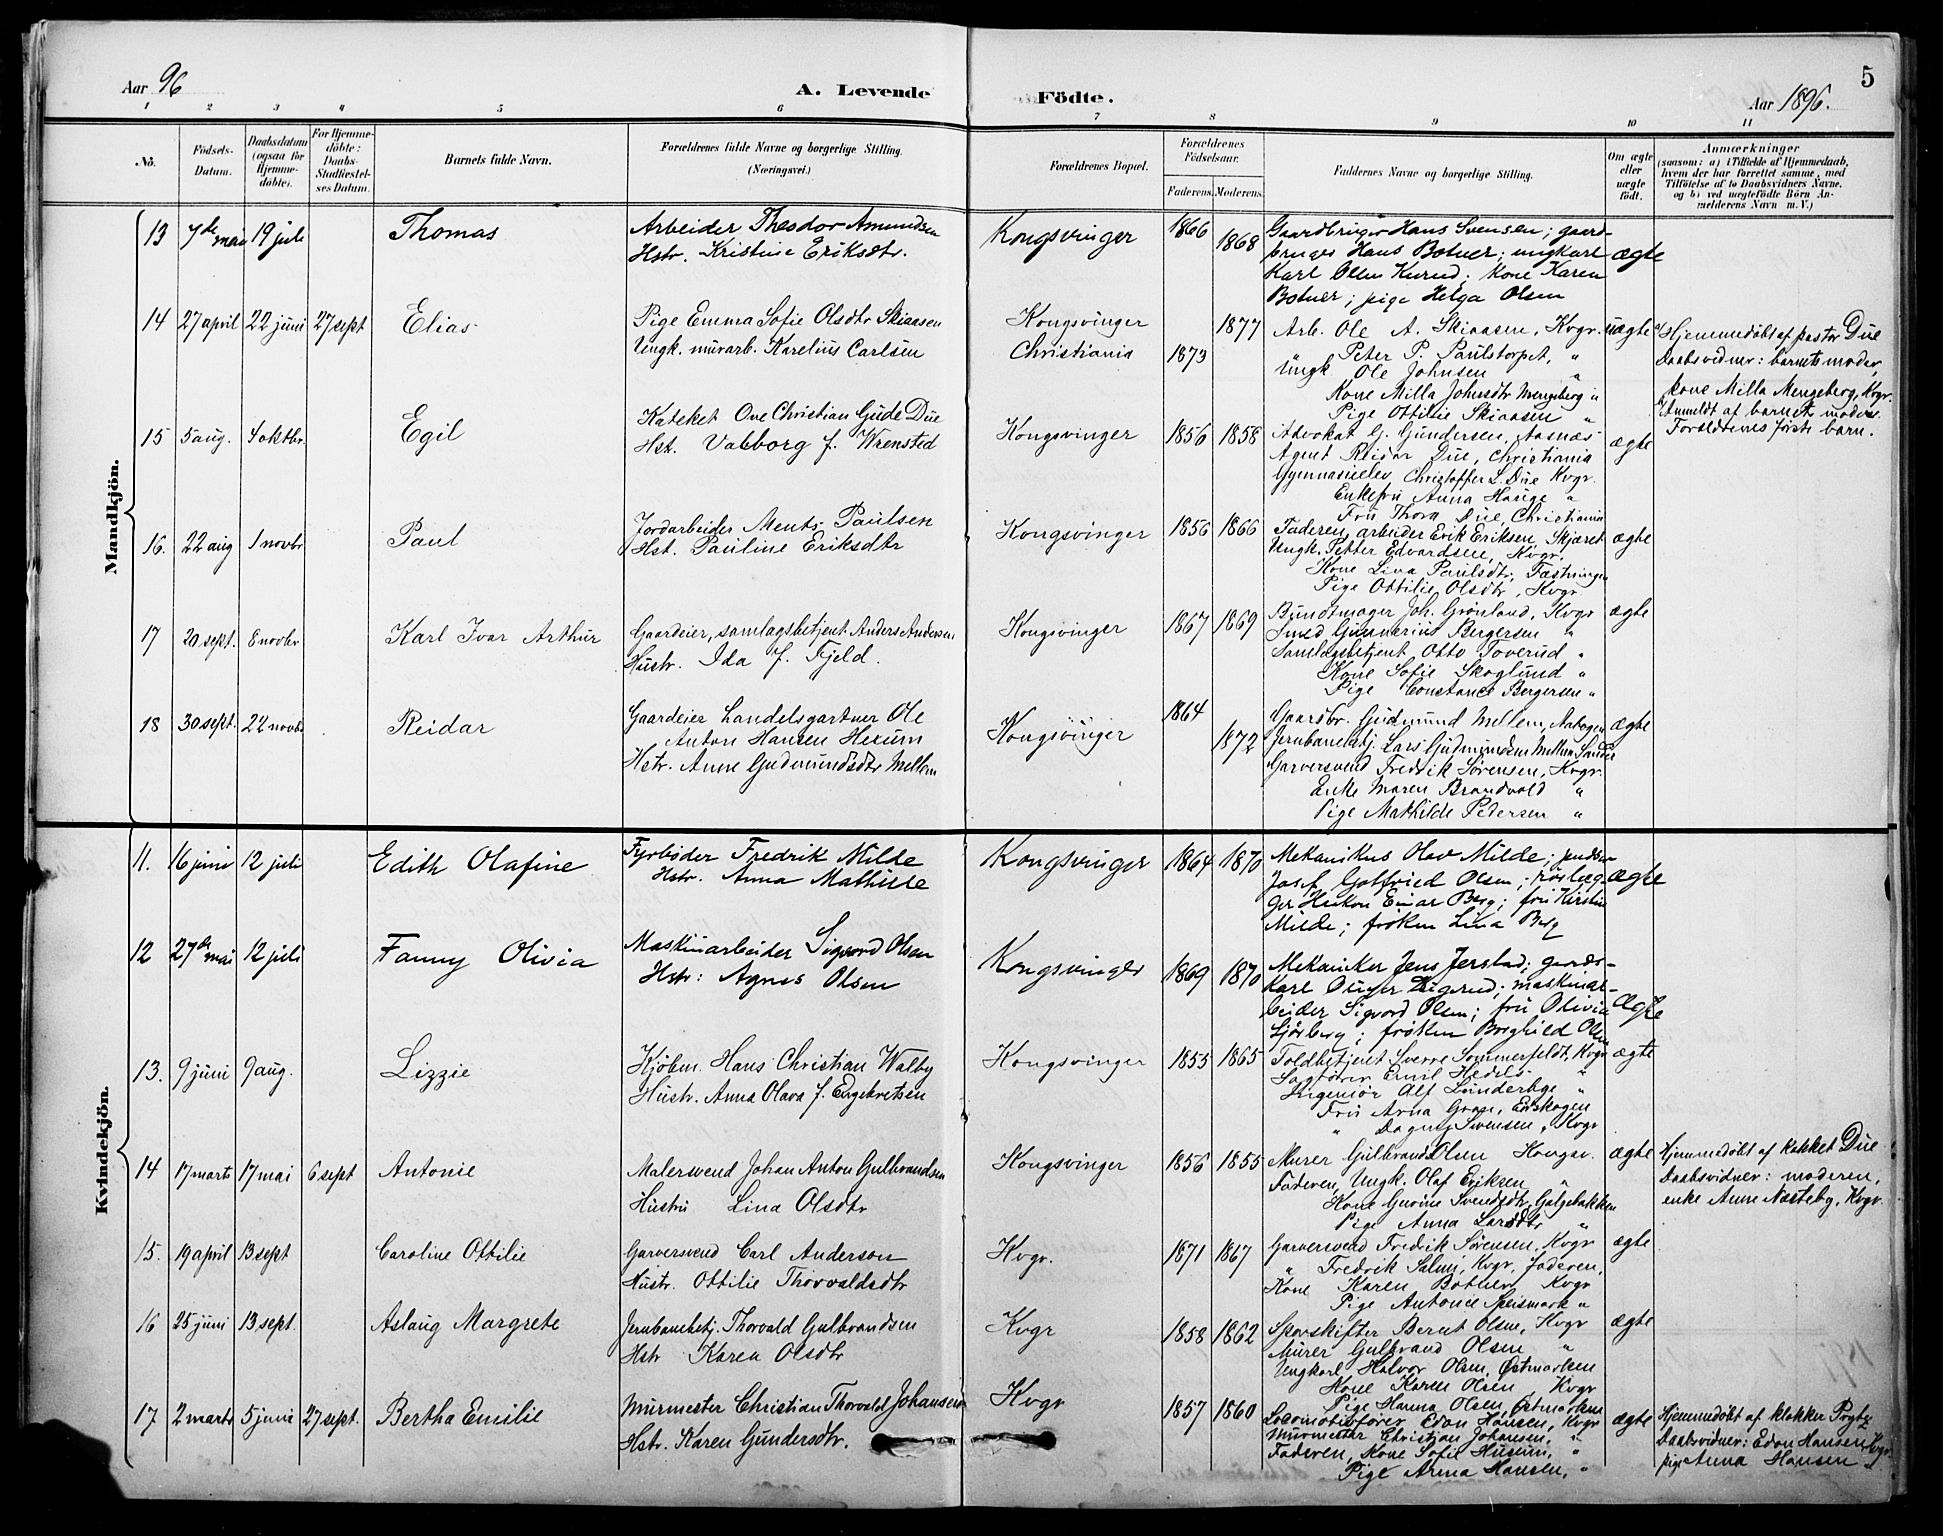 5
Aar 96
A. Levende
Födte.
Aar 1896.
1 2 3 4 5 6 7 8 9 10 11
No.
Födsels-Datum.
Daabsdatum (ogsaa for Hjemme-döbte).
For Hjemme-döbte: Daabs-Stadfæstel-ses Datum.
Barnets fulde Navn.
Forældrenes fulde Navne og borgerlige Stilling.
(Næringsvei.)
Forældrenes Bopæl.
Forældrenes Födselsaar.
Faderens. Moderens.
Faddernes Navne og borgerlige Stilling.
Om ægte eller uægte födt.
Anmærkninger
(saasom: a) i Tilfælde af Hjemmedaab,
hvem der har forrettet samme, med
Tilföielse af to Daabsvidners Navne.
og b) ved uægtefödte Börn An-
melderens Navn m. V.)
Mandkjön.
13 7de mai 19 juli Thomas
Arbeider Theodor Amundsen
Hstr. Kristine Eriksdtr.
Kongsvinger 1866 1868
Gaardbruger Hans Svensen; gaard-
bruger Hans Botner; ungkarl
Karl Olsen Kurud; kone Karen
Botner; pige Helga Olsen
ægte
14 27 april 22 juni 27 sept Elias
Pige Emma Sofie Olsdtr Skiaasen
Ungk. murarb. Karelius Carlsen
Kongsvinger
Christiania
1873 1877
Arb. Ole A. Skiaasen, Kvgr.
Peter P. Paulstorpet, "
Ungk Ole Johnsen "
Kone Milla Johnsdtr Mengeberg "
Pige Ottilie Skiaasen "
uægte
a/ Hjemmedöbt af pastor Due
Daabsvidner: barnets moder,
kone Milla Mengeberg, Kvgr.
b/ Anmeldt af barnets moder.
Forældrenes förste barn.
15 5 aug. 4 oktbr. Egil
Kateket Ove Christian Gude Due
Hst. Valborg f. Wrensted
Kongsvinger 1856 1858
Advokat G. Gundersen, Aasnæs
Agent Reisar Due, Christiania
Gymnasielev Christoffer L. Due Kvgr.
Enkefru Anna Hauge "
Fru Thora Due, Christiania
ægte
16. 22 aug 1 novbr Paul
Jordarbeider Ments Paulsen
Hst. Pauline Eriksdtr
Kongsvinger 1856 1866
Faderen, arbeider Erik Eriksen, Skjæret
Ungk. Petter Edvardsen, Kvgr.
Kone Lina Paulsdtr, Fæstningen
Pige Ottilie Olsdtr, Kvgr
ægte
17 20 sept. 8 novbr Karl Ivar Arthur
Gaardeier, samlagsbetjent Anders Andersen
Hustr. Ida f. Fjeld.
Kongsvinger 1867 1869
Bundtmager Joh. Grönland, Kvgr
Smed Gunnerius Bergersen "
Samlagsbetjent Otto Toverud "
Kone Sofie Skoglund "
Pige Constance Bergersen "
ægte
18 30 sept. 22 novbr Reidar
Gaardeier Landelsgartner Ole
Anton Hansen Hexum
Hstr. Anne Gudmundsdtr Mellem
Kongsvinger 1864 1872
Gaardbr. Gudmund Mellem, Aabogen
Jernbanebetj. Lars Gudmundsen Mellem
Garversvend Fredrik Sörensen, Kvgr.
Enke Maren Brandvold "
Pige Mathilde Pedersen "
ægte
Kvindekjön.
11. 16 juni 12 juli Edith Olafine
Fyrböder Fredrik Milde
Hstr. Anna Mathilde
Kongsvinger 1864 1870
Mekanikus Olav Milde;
Josef Gotfried Olsen;
Haakon Einar Berg; fru Kirstine
Milde; fröken Lina Berg
ægte
12 27de mai 12 juli Fanny Olivia
Maskinarbeider Sigvord Olsen
Hstr: Agnes Olsen
Kongsvinger 1869 1870
Mekaniker Jens Jerstad;
Karl Oliger Digerud; maskinar-
beider Sigvord Olsen; fru Olivia
Sjöberg; fröken Borghild Olsen
ægte
13. 9 juni 9 aug. Lizzie
Kjöbm. Hans Christian Walby
Hustr. Anna Olava f. Engebretsen
Kongsvinger 1855 1865
Toldbetjent Sverre Sommerfeldt, Kvgr
Sagförer Emil Hedels "
Ingeniör Alf Lunderbye "
Fru Anna Gran, Eidskogen
" Dagny Svensen, Kvgr
ægte
14 17 marts 17 mai 6 sept Antonie
Malersvend Johan Anton Gulbrandsen
Hustru Lina Olsdtr
Kongsvinger 1856 1855
Murer Gulbrand Olsen Kongsv.
Faderen, Ungk. Olaf Eriksen "
Kone Gurine Svendsdtr, Galgebakken
Pige Anna Larsdtr "
ægte
Hjemmedöbt af kateket Due
Daabsvidner: moderen,
enke Anne Næsteby, Kvgr.
15. 19 april 13 sept Caroline Ottilie
Garversvend Carl Anderson
Hustr. Ottilie Thorvaldsdtr
Kvgr. 1871 1867
Garversvend Fredrik Sörensen, Kvgr
" Fredrik Salmi, Kvgr, Faderen,
Kone Karen Botner, Kvgr
Pige Antonie Speismark "
ægte
16 25 juni 13 sept. Aslaug Margrete
Jernbanebetj. Thorvald Gulbrandsen
Hstr Karen Olsdtr
Kvgr 1858 1862
Sporskifter Bernt Olsen, Kvgr
Murer Gulbrand Olsen "
Ungkarl Halvor Olsen, Östmarken
Kone Karen Olsen Kvgr
Pige Hanna Olsen, Östmarken
ægte
17 2 marts 5 juni 27 sept. Bertha Emilie
Murmester Christian Thorvald Johansen
Hstr. Karen Gundersdtr.
Kvgr 1857 1860
Locomotivförer Edon Hansen, Kvgr
Murmester Christian Johansen, "
Faderen, Kone Sofie Husum, "
Pige Anna Hansen, "
ægte
Hjemmedöbt af klokker Prytz
Daabsvidner: Edon Hansen, Kvgr.
pige Anna Hansen "